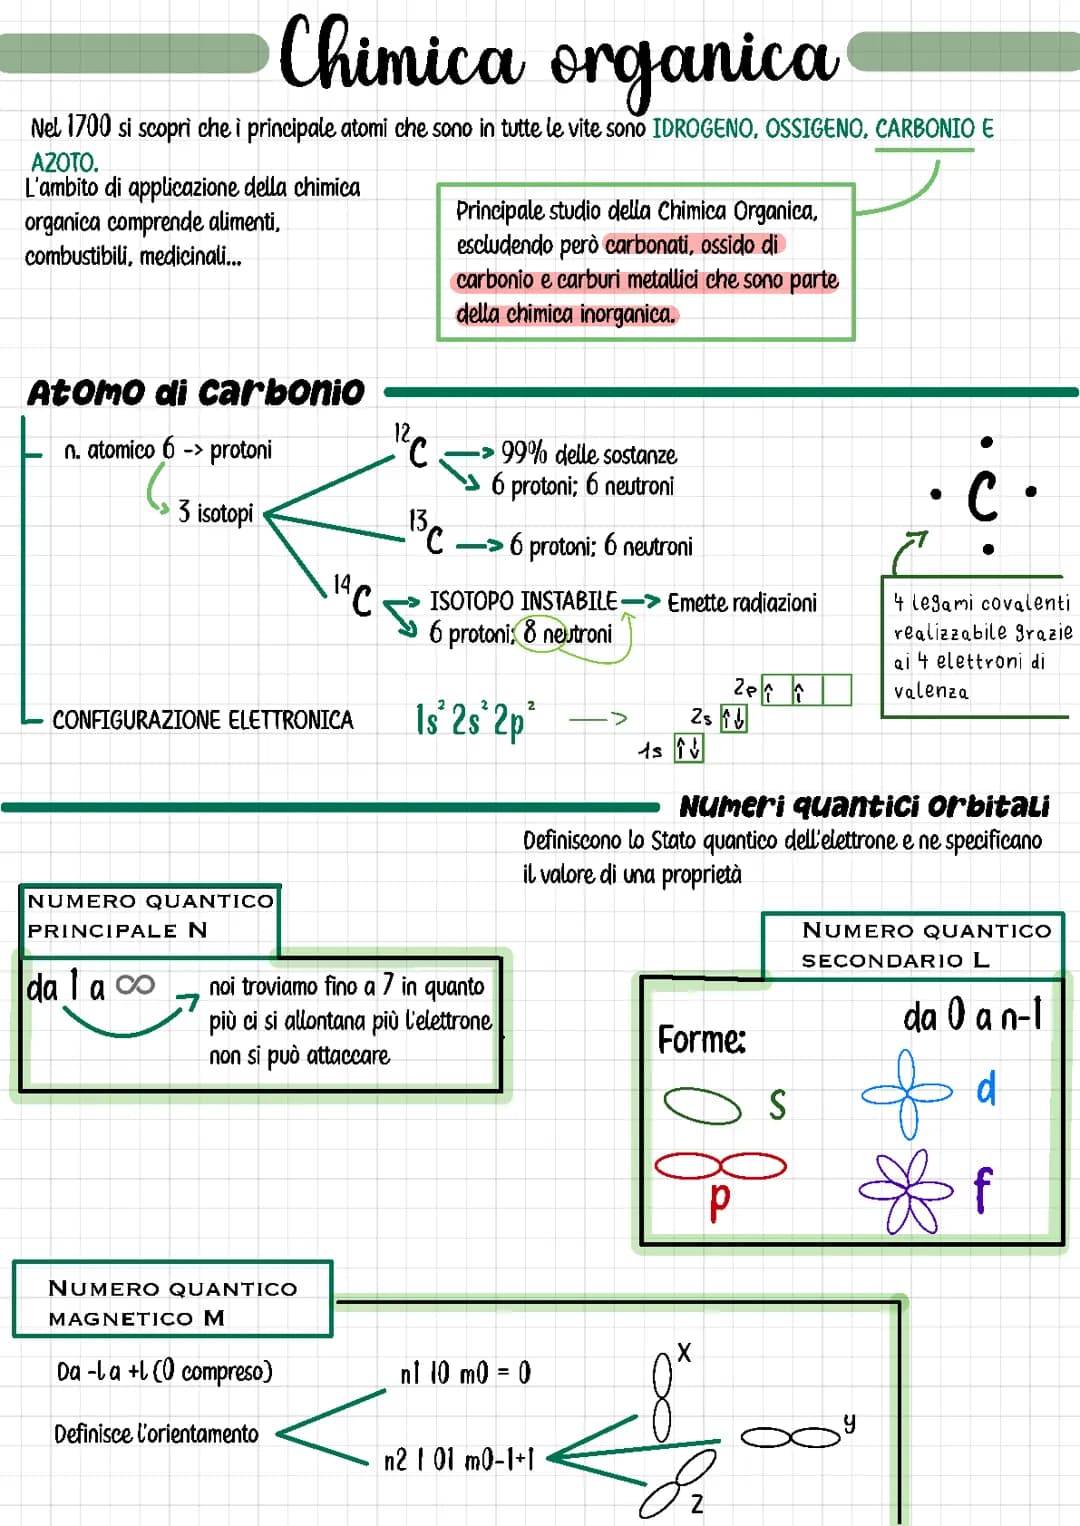 Chimica organica
Nel 1700 si scoprì che i principale atomi che sono in tutte le vite sono IDROGENO, OSSIGENO, CARBONIO E
AZOTO.
L'ambito di applicazione della chimica
organica comprende alimenti,
combustibili, medicinali...
Principale studio della Chimica Organica,
escludendo però carbonati, ossido di
carbonio e carburi metallici che sono parte
della chimica inorganica.
Atomo di carbonio
n. atomico 6 -> protoni
3 isotopi
¹²C
99% delle sostanze
6 protoni; 6 neutroni
¹³C
6 protoni; 6 neutroni
¹⁴C
ISOTOPO INSTABILE
Emette radiazioni
6 protoni; 8 neutroni
C
4 legami covalenti
realizzabile grazie
ai 4 elettroni di
valenza
CONFIGURAZIONE ELETTRONICA
1s² 2s² 2p²
2p
2s
1s
Numeri quantici orbitali
Definiscono lo Stato quantico dell'elettrone e ne specificano
il valore di una proprietà
NUMERO QUANTICO
PRINCIPALE N
da 1 a ∞
noi troviamo fino a 7 in quanto
più ci si allontana più l'elettrone
non si può attaccare
NUMERO QUANTICO
SECONDARIO L
da 0 a n-1
Forme:
s
d
p
f
NUMERO QUANTICO
MAGNETICO M
Da -l a +l (0 compreso)
Definisce l'orientamento
n1 l0 m0 = 0
n2 l 01 m0-1+1
x
y
z